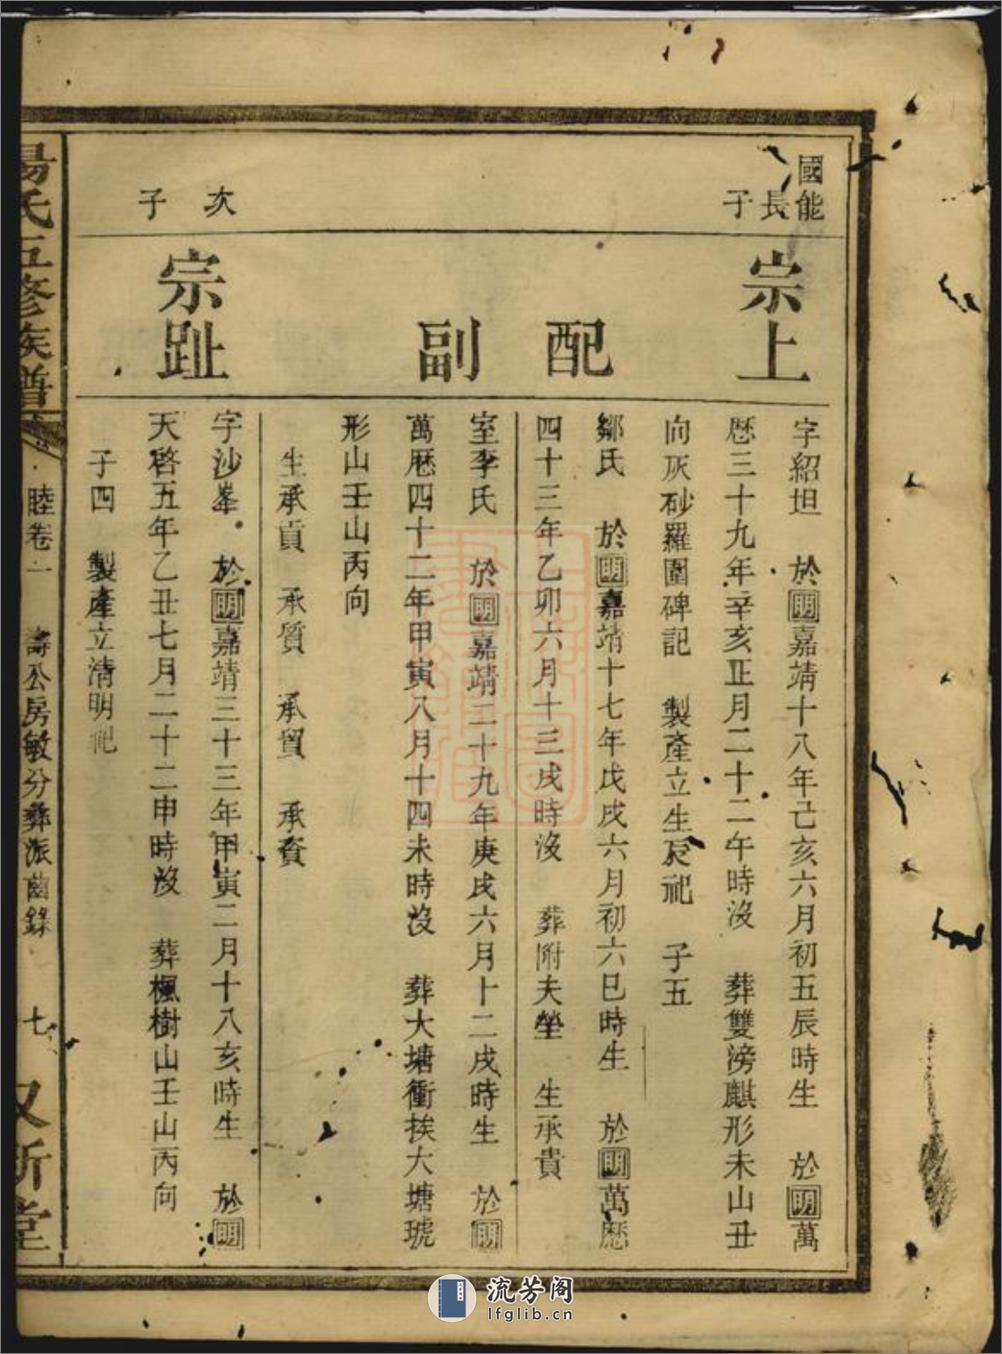 國能
長子
宗上
字紹坦 於明嘉靖十八年己亥六月初五辰時生 於明萬
歷三十九年辛亥正月二十二午時沒 葬雙滂麒形未山丑
向灰砂羅圍碑記 製產立生辰祀 子五
配
鄒氏 於明嘉靖十七年戊戌六月初六巳時生 於明萬歷
四十三年乙卯六月十三戌時沒 葬附夫塋 生承貴
副
室李氏 於明嘉靖二十九年庚戌六月十二戌時生 於明
萬歷四十二年甲寅八月十四未時沒 葬大塘衝挨大塘琥
形山壬山丙向
生承貢 承質 承貿 承賚
次子
宗趾
字沙峯 於明嘉靖三十三年甲寅二月十八亥時生 於明
天啓五年乙丑七月二十二申時沒 葬楓樹山壬山丙向
子四 製產立清明祀
湯氏五修族譜
睦卷一 壽公房敏分彝派齒錄 七
又新堂
流芳阁
lfglib.cn